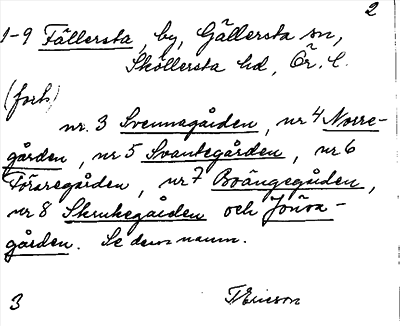 2
1-9 Fällersta, by, Gällersta sn,
Sköllersta hd, Ör. l.
(forts)
nr. 3 Svennsgården, nr 4 Norre-
gården, nr 5 Svantegården, nr 6
Föraregården, nr 7 Boängegården,
nr 8 Skrukegården och Jönsa-
gården. Se dessa namn.
3 T Ericson